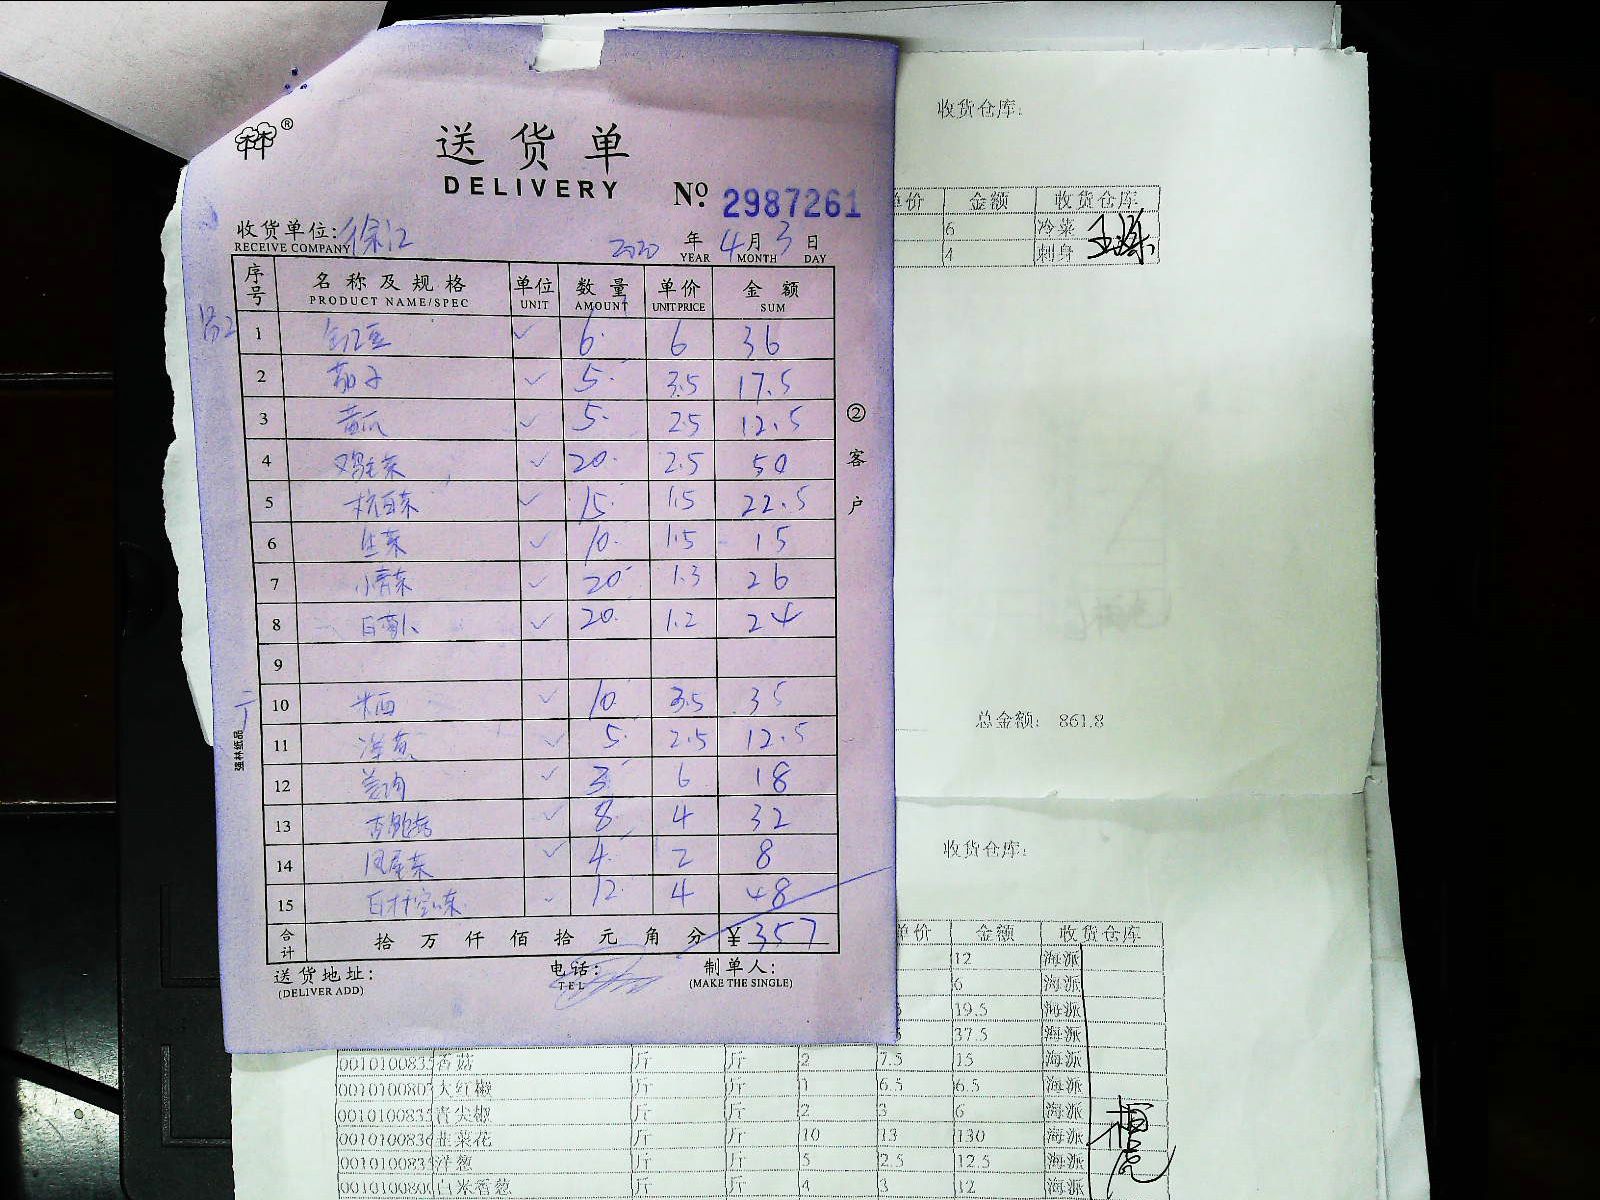 送货单
DELIVERY
№ 2987261
收货单位: 徐汇
RECEIVE COMPANY
2020 年 4 月 3 日
YEAR MONTH DAY
序号 名称及规格 单位 数量 单价 金额
PRODUCT NAME/SPEC UNIT AMOUNT UNIT PRICE SUM
1 6 6 36
2 茄子 5 3.5 17.5
3 黄瓜 5 2.5 12.5
4 鸡毛菜 20 2.5 50
5 杭白菜 15 1.5 22.5
6 生菜 10 1.5 15
7 小青菜 20 1.3 26
8 白萝卜 20 1.2 24
9
10 10 3.5 35
11 洋葱 5 2.5 12.5
12 3 6 18
13 8 4 32
14 4 2 8
15 12 4 48
合计 拾 万 仟 佰 拾 元 角 分 ¥357
送货地址: 电话: 制单人:
(DELIVER ADD) TEL (MAKE THE SINGLE)
②客户
强林纸品
收货仓库:
单价 金额 收货仓库
6 冷菜
4 刺身
总金额: 861.8
收货仓库:
单价 金额 收货仓库
12 海派
6 海派
19.5 海派
37.5 海派
香菇 斤 斤 2 7.5 15 海派
大红椒 斤 斤 1 6.5 6.5 海派
青尖椒 斤 斤 2 3 6 海派
韭菜花 斤 斤 10 13 130 海派
洋葱 斤 斤 5 2.5 12.5 海派
白米香葱 斤 斤 4 3 12 海派